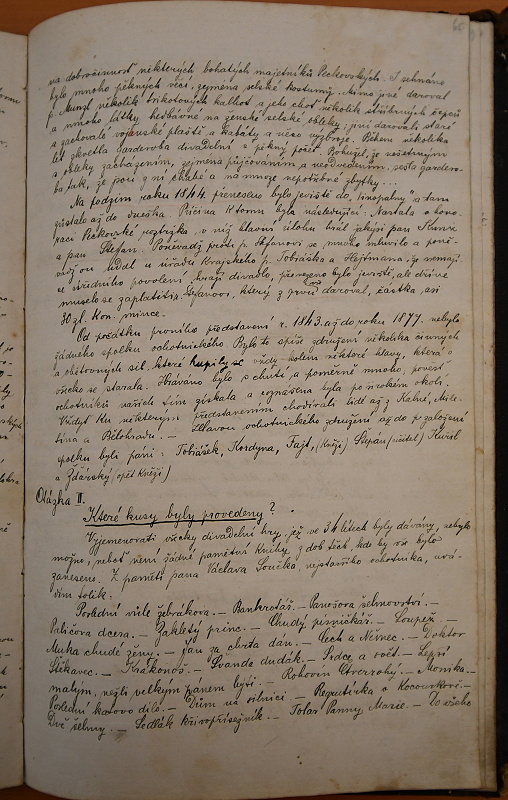 na dobročinnost některých bohatých majetníků Peckovských. I sehnáno
bylo mnoho pěkných věcí, zejména selské kostumy. Mimo jiné daroval
p. Munzl několik trikotových kalhot a jeho choť několik stříbrných čepců
a mnoho látky hedbávné na ženské selské obleky; jiní darovali staré
a zachovalé vojenské pláště a kabáty a něco výzbroje. Během několika
let vzrostla garderoba divadelní v pěkný počet. Bohužel, že nešetrným
s obleky zacházením, zejména půjčováním a neodvedením, sešla gardero-
ba tak, že jsou z ní chabé a na mnoze nepotřebné zbytky...
Na podzim roku 1844. přeneseno bylo jeviště do "
zůstalo až do dneška. Příčina k tomu byla následující: Nastala v hono-
raci Peckovské roztržka, v níž hlavní úlohu hrál jakýsi pan Kunze
a pan Štefan. Poněvadž proti p. Štefanovi se mnoho mluvilo a poně-
vadž on udal u úřadu krajského p. Tobiáška a Hofmana, že nemají
úředního povolení hrají divadlo, přeneseno bylo jeviště, ale dříve
muselo se zaplatiti p. Štefanovi, který z prvu daroval, částka asi
30 zl. kon. mince.
Od počátku prvního představení r. 1843. až do roku 1877. nebylo
žádného spolku ochotnického. Bylo to spíše sdružení několika činných
a obětovných sil, které kupily se vždy kolem některé hlavy, která o
všecko se starala. Hráváno bylo s chutí a poměrně mnoho, pověst
ochotníků našich tím získala a roznášena byla po širokém okolí.
Vždyť ku některým představením chodívali lidé až z Kalné, Mile-
tína a Bělohradu. — Hlavou ochotnického sdružení až do založení
spolku byli páni: Tobiášek, Kordyna, Fajt, (kněz) Štěpán (učitel)
a Žďárský (opět kněz)
Otázka II.
Které kusy byly provedeny?
Vyjmenovati všecky divadelní hry, jež ve 34 letech byly dávány, nebylo
možno, neboť není žádné pamětní knihy z dob těch, kde by vše bylo
zaneseno. Z paměti pana Václava Součka, nejstaršího ochotníka, uvá-
dím tolik.
Poslední vůle žebrákova. — Bankrotář. — Panošova šelmovství. —
Paličova dcera. — Zakletý princ. — Chudý písničkář. — Loupež. —
Muka chudé ženy. — Ján za chrta dán. — Čech a Němec. — Doktor
Štěkavec. — Krakonoš. — Švanda dudák. — Srdce a svět. — Lepší
malým, nežli velkým pánem býti. — Rohovín Čtverrohý. — Monika. —
Poslední katovo dílo. — Dům na silnici. — Rozmtička v Kocourkově. —
Dvě šelmy. — Sedlák křivopřísežník. — Tolar Panny Marie. — Do všeho